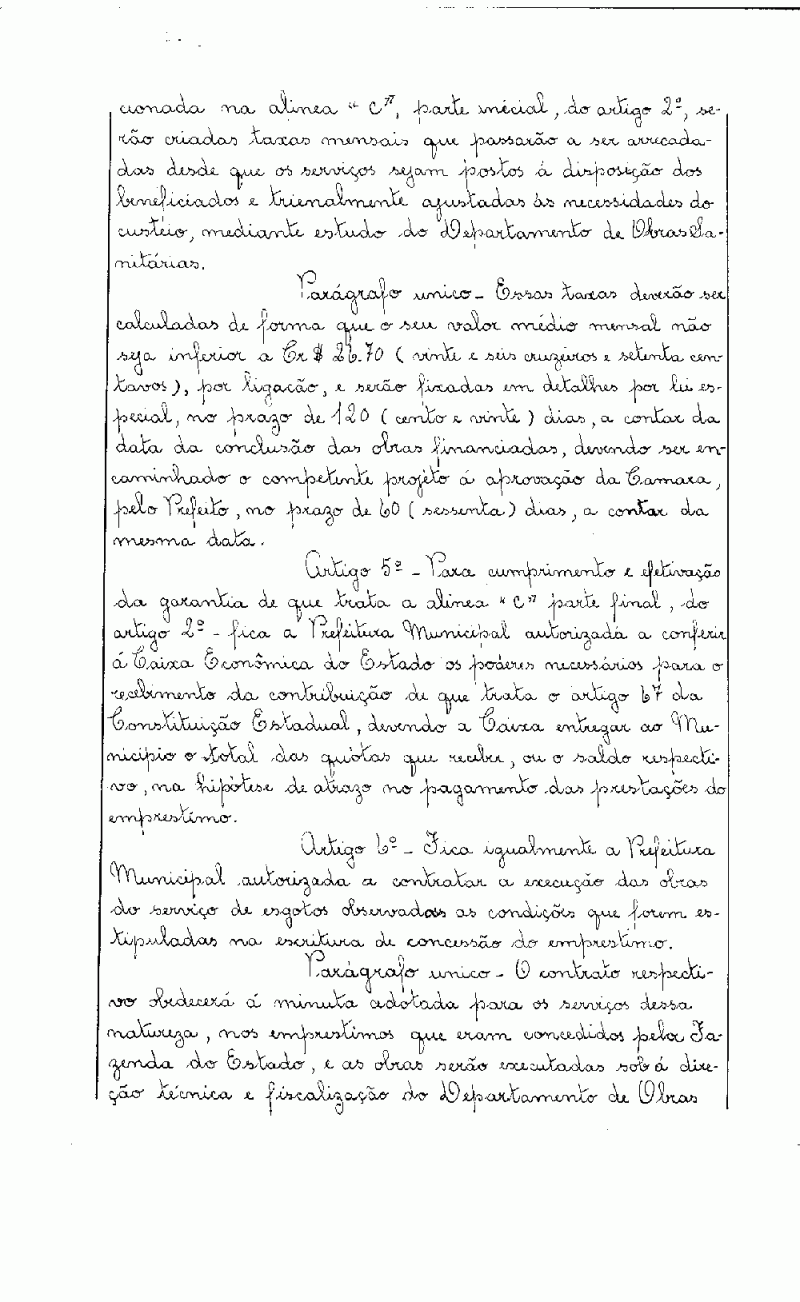 cionada na alinea "c", parte inicial, do artigo 2º, se-
rão criadas taxas mensais que passarão a ser arrecada-
das desde que os serviços sejam postos á disposição dos
beneficiados e trienalmente ajustadas às necessidades do
custeio, mediante estudo do Departamento de Obras Sa-
nitárias.
Parágrafo unico - Essas taxas deverão ser
calculadas de forma que o seu valor médio mensal não
seja inferior a Cr$ 26.70 (vinte e seis cruzeiros e setenta cen-
tavos), por ligação, e serão fixadas em detalhes por lei es-
pecial, no prazo de 120 (cento e vinte) dias, a contar da
data da conclusão das obras financiadas, devendo ser en-
caminhado o competente projéto á aprovação da Camara,
pelo Prefeito, no prazo de 60 (sessenta) dias, a contar da
mesma data.
Artigo 5º - Para cumprimento e efetivação
da garantia de que trata a alinea "c" parte final, do
artigo 2º - fica a Prefeitura Municipal autorizada a conferir
á Caixa Econômica do Estado os podêres necessários para o
recebimento da contribuição de que trata o artigo 67 da
Constituição Estadual, devendo a Caixa entregar ao Mu-
nicipio o total das quótas que receber, ou o saldo respecti-
vo, na hipótese de atrazo no pagamento das prestações do
emprestimo.
Artigo 6º - Fica igualmente a Prefeitura
Municipal autorizada a contratar a execução das obras
do serviço de esgotos observadas as condições que forem es-
tipuladas na escritura de concessão do emprestimo.
Parágrafo unico - O contrato respecti-
vo obdecerá á minuta adótada para os serviços dessa
natureza, nos emprestimos que eram concedidos pela Fa-
zenda do Estado, e as obras serão executadas sob á dire-
ção técnica e fiscalização do Departamento de Obras